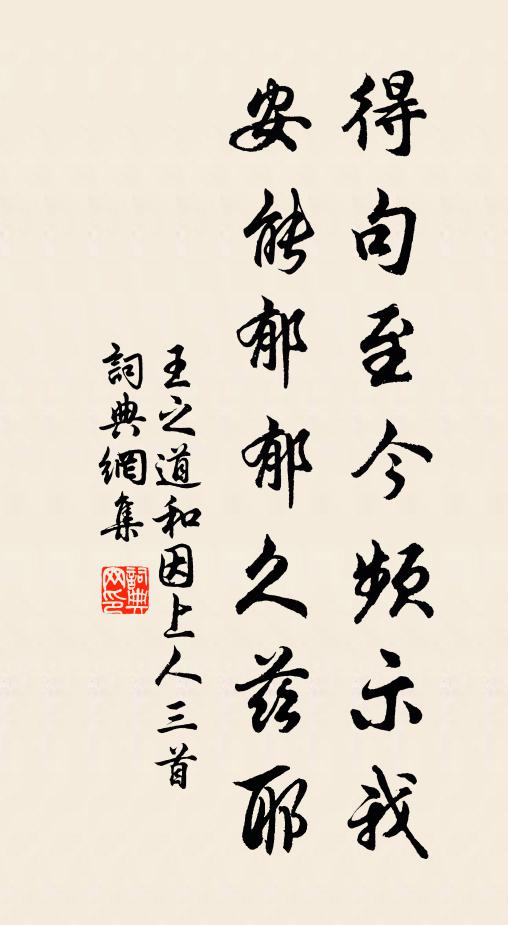 得句至今頻示我
安能郁郁久茲耶
王之道和因上人三首
詞典網集
詞典网印